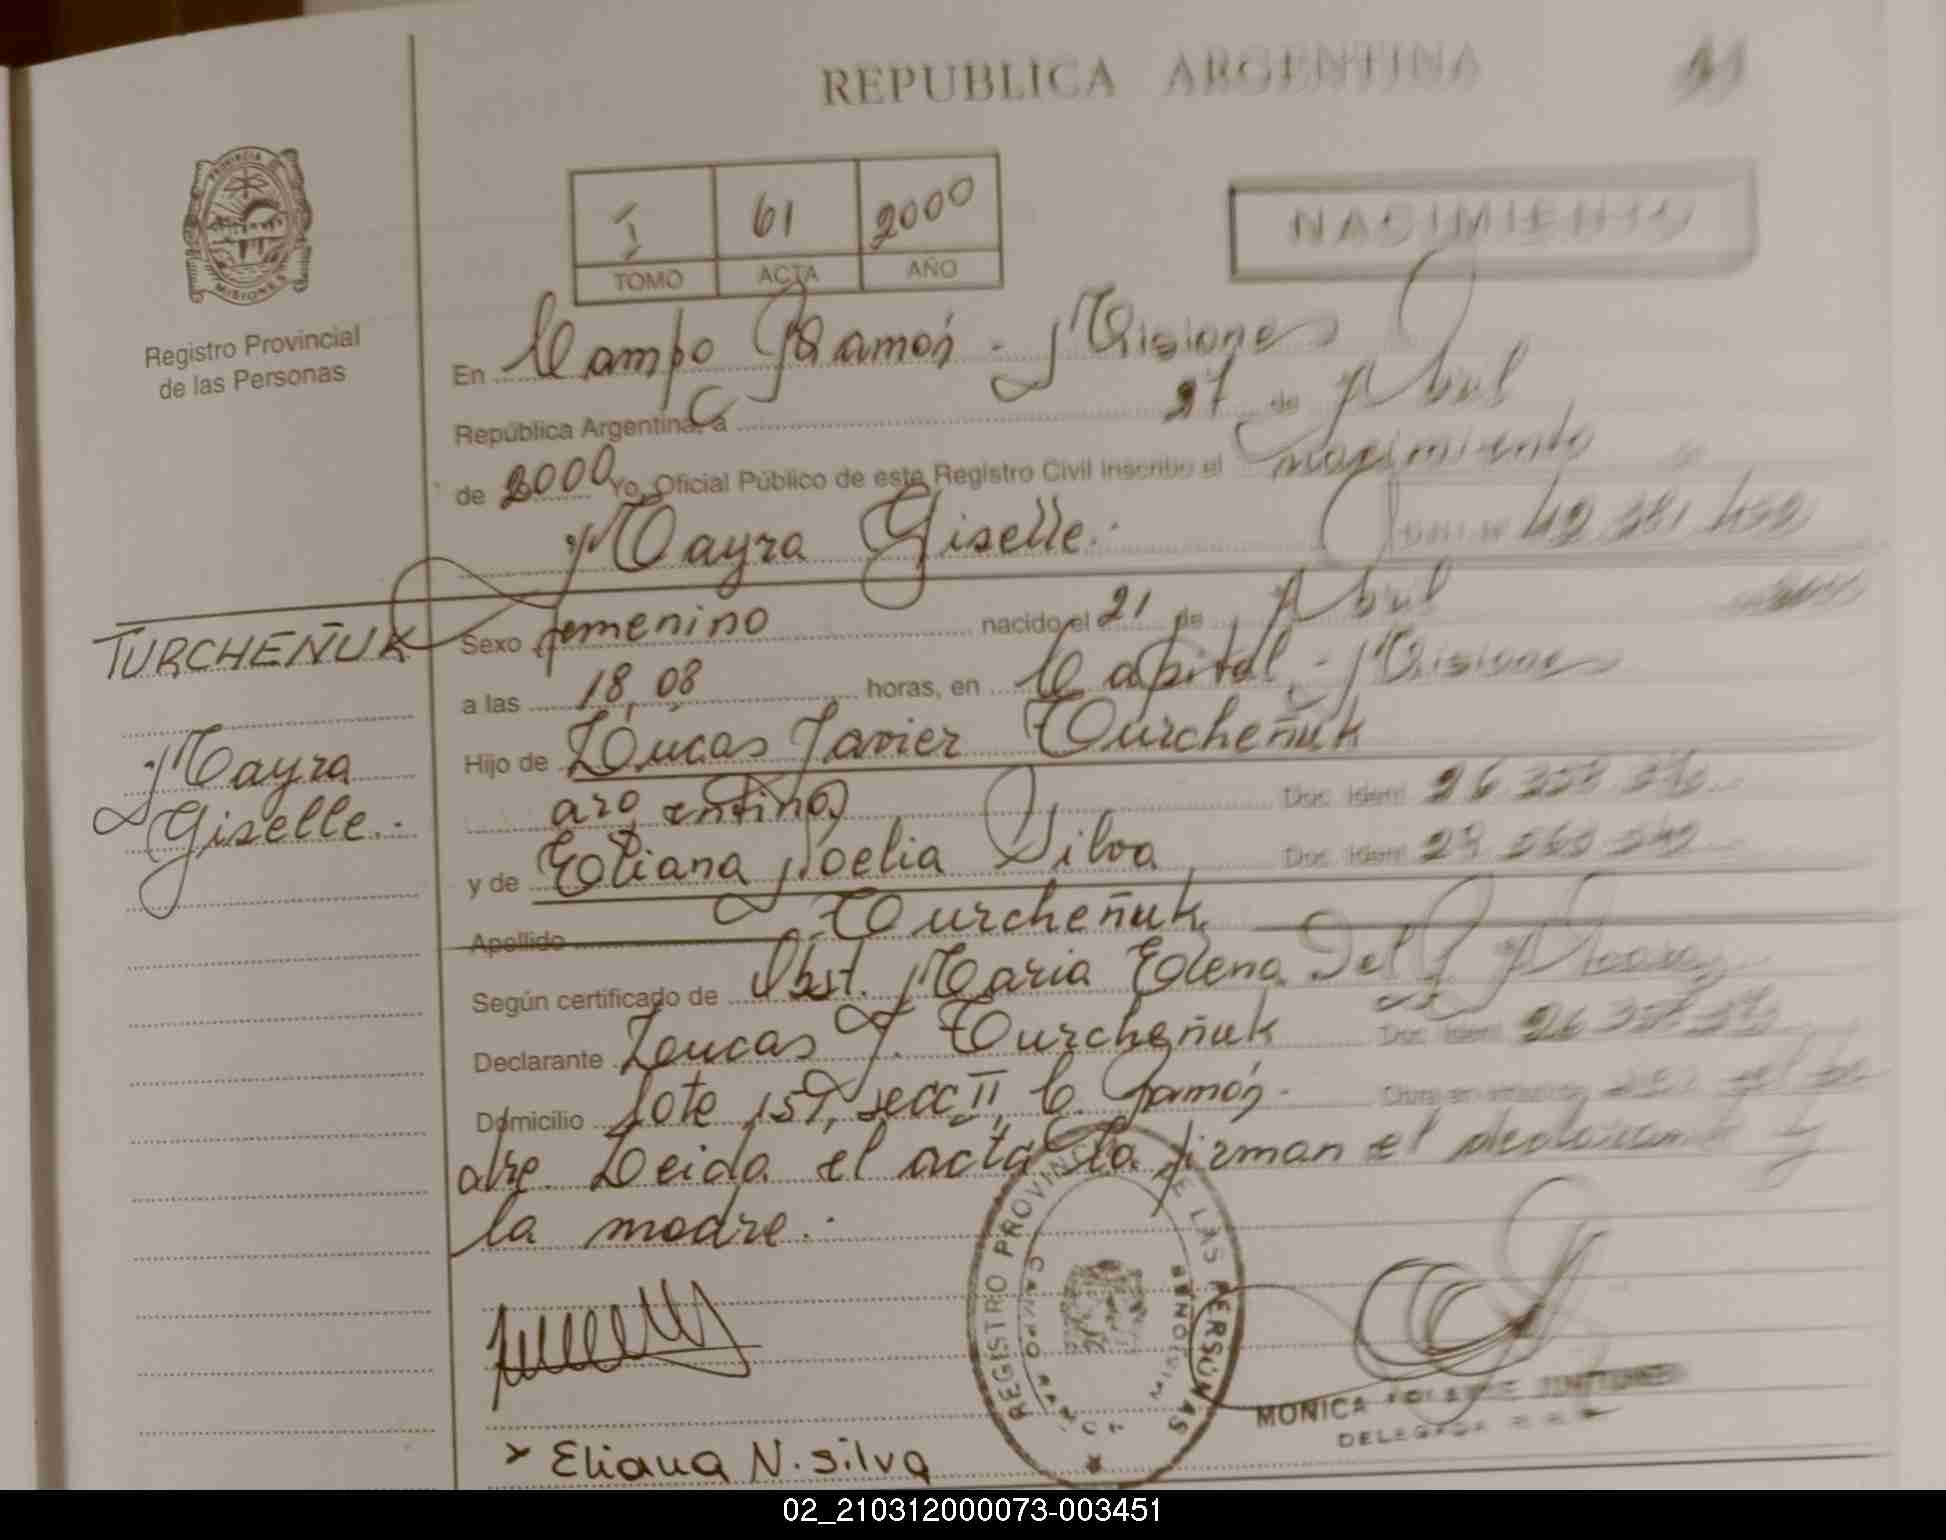 REPUBLICA ARGENTINA
PROVINCIA DE
MISIONES
Registro Provincial
de las Personas
I 61 2000
TOMO ACTA AÑO
NACIMIENTO
En Campo Ramón - Misiones
República Argentina, a 27 de Abril
de 2000 Yo, Oficial Público de este Registro Civil inscribo el nacimiento
Mayra Giselle.-
TURCHEÑUK
Mayra
Giselle.-
Sexo femenino nacido el 21 de Abril
a las 18,08 horas, en Capital - Misiones
Hijo de Lucas Javier Turcheñuk
argentinos Doc. Ident.
y de Eliana Noelia Silva Doc. Ident.
Apellido Turcheñuk
Según certificado de Obst. Maria Elena Del
Declarante Lucas J. Turcheñuk Doc. Ident.
Domicilio Lote 157, secc II, C. Ramón.-
dre. Leida el acta la firman el declarante y
la madre.-
REGISTRO PROVINCIAL DE LAS PERSONAS
CAMPO RAMON
MISIONES
MONICA
DELEGADA
x Eliana N. silva
02_210312000073-003451